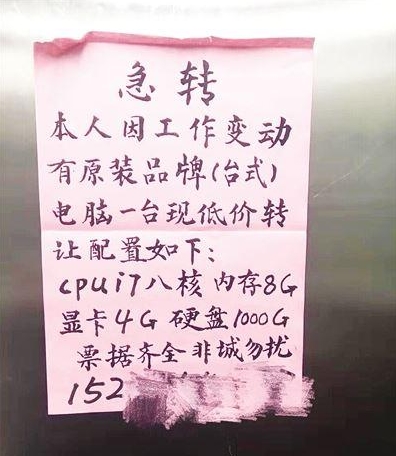 急转
本人因工作变动
有原装品牌(台式)
电脑一台现低价转
让配置如下:
cpui7八核内存8G
显卡4G硬盘1000G
票据齐全非城勿扰
152